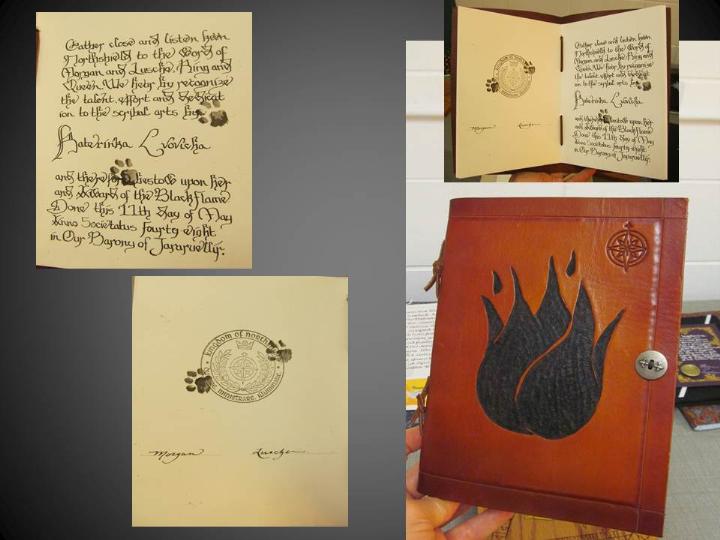 Gather close and listen
Northshield to the Word of
Morgan and Lusche, King and
Queen. We here by recognize
the talent, effort and dedicat
ion to the scribal arts by
Katerinka Lvovicha
and therefore bestow upon her
and Award of the Black Flame
Done this 11th day of May
Anno Societatus fourty eight
in Our Barony of Jararvellir.
Kingdom of North
Morgan
Lusche
Morgan
Lusche
Gather close and listen
Northshield to the Word of
Morgan and Lusche, King and
Queen. We here by recognize
the talent, effort and dedicat
ion to the scribal arts
Katerinka Lvovicha
and bestow upon her
and Award of the Black Flame
Done this 11th day of May
Anno Societatus fourty eight
in Our Barony of Jararvellir.